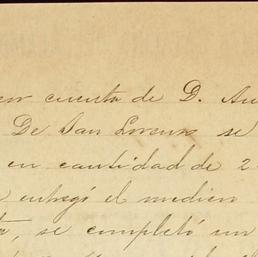 por cuenta de D. Au
De San Lorenzo se
en cantidad de 2
entregó el medien
se completó un